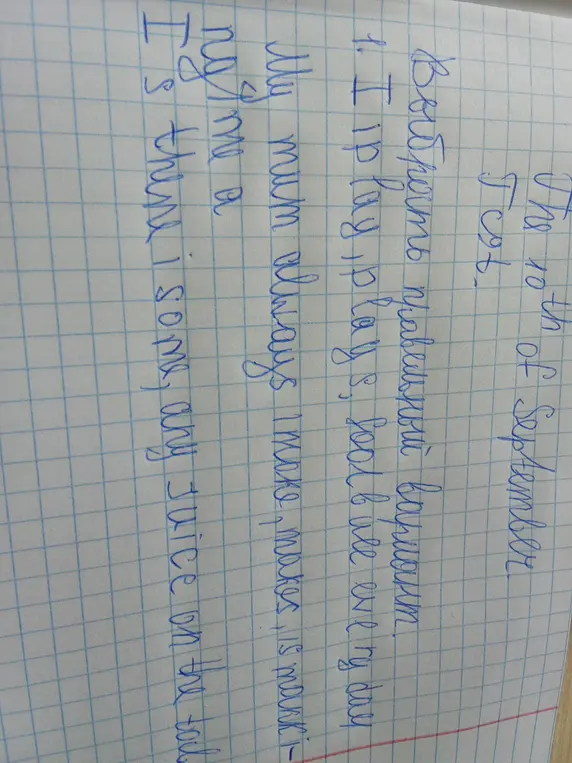 The 10th of September.
Test.
Выбрать правельный вариант.
1. I | play, plays, football every day
My mum always | make, makes, is makki-
ng/me a
I s there | some, any juice on the